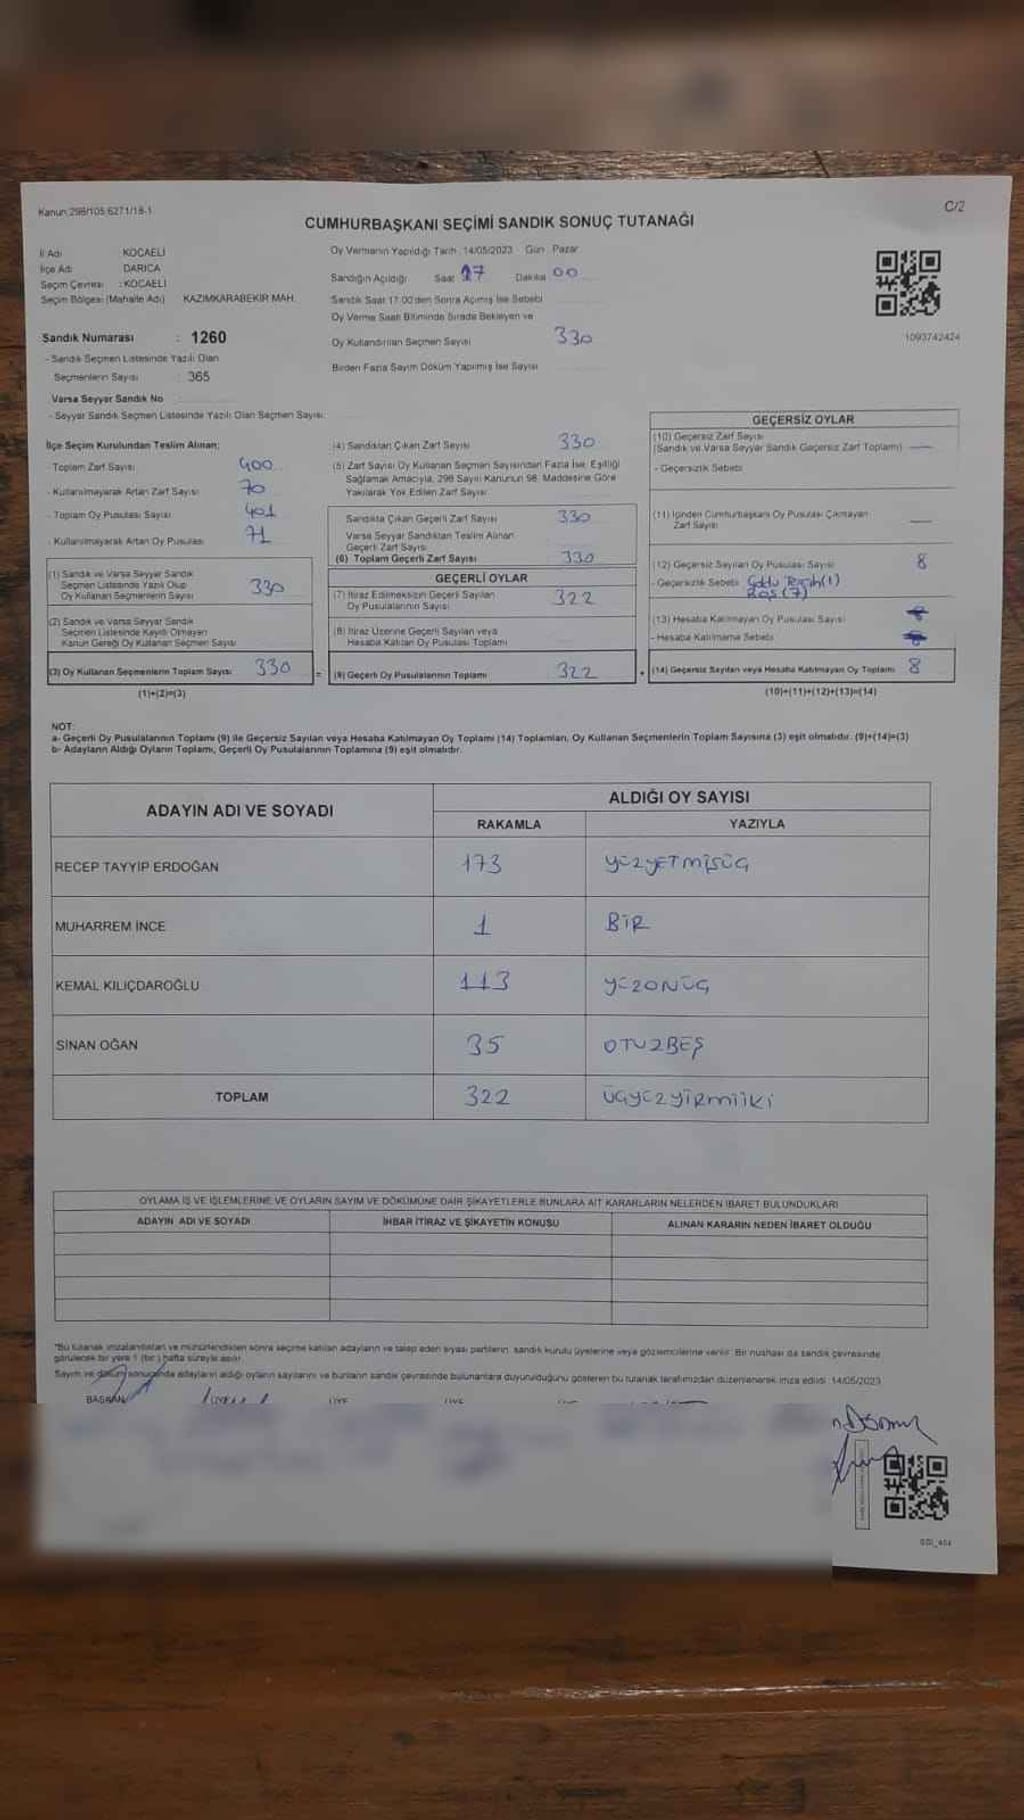 Kanun:298/105 6271/18-1
C/2
CUMHURBAŞKANI SEÇİMİ SANDIK SONUÇ TUTANAĞI
İl Adı KOCAELİ
İlçe Adı DARICA
Seçim Çevresi : KOCAELİ
Seçim Bölgesi (Mahalle Adı) KAZIMKARABEKİR MAH.
Sandık Numarası : 1260
- Sandık Seçmen Listesinde Yazılı Olan
Seçmenlerin Sayısı : 365
Varsa Seyyar Sandık No
- Seyyar Sandık Seçmen Listesinde Yazılı Olan Seçmen Sayısı:
Oy Vermenin Yapıldığı Tarih : 14/05/2023 Gün : Pazar
Sandığın Açıldığı Saat 17 Dakika 00
Sandık Saat 17.00'den Sonra Açılmış İse Sebebi
Oy Verme Saati Bitiminde Sırada Bekleyen ve
Oy Kullandırılan Seçmen Sayısı 330
Birden Fazla Sayım Döküm Yapılmış İse Sayısı
1093742424
İlçe Seçim Kurulundan Teslim Alınan;
- Toplam Zarf Sayısı 400
- Kullanılmayarak Artan Zarf Sayısı 70
- Toplam Oy Pusulası Sayısı 401
- Kullanılmayarak Artan Oy Pusulası 71
(1) Sandık ve Varsa Seyyar Sandık
Seçmen Listesinde Yazılı Olup
Oy Kullanan Seçmenlerin Sayısı 330
(2) Sandık ve Varsa Seyyar Sandık
Seçmen Listesinde Kayıtlı Olmayan
Kanun Gereği Oy Kullanan Seçmen Sayısı
(3) Oy Kullanan Seçmenlerin Toplam Sayısı 330
(1)+(2)=(3)
(4) Sandıktan Çıkan Zarf Sayısı 330
(5) Zarf Sayısı Oy Kullanan Seçmen Sayısından Fazla İse, Eşitliği
Sağlamak Amacıyla, 298 Sayılı Kanunun 98. Maddesine Göre
Yakılarak Yok Edilen Zarf Sayısı
Sandıkta Çıkan Geçerli Zarf Sayısı 330
Varsa Seyyar Sandıktan Teslim Alınan
Geçerli Zarf Sayısı
(6) Toplam Geçerli Zarf Sayısı 330
GEÇERLİ OYLAR
(7) İtiraz Edilmeksizin Geçerli Sayılan
Oy Pusulalarının Sayısı 322
(8) İtiraz Üzerine Geçerli Sayılan veya
Hesaba Katılan Oy Pusulası Toplamı
= (9) Geçerli Oy Pusulalarının Toplamı 322
GEÇERSİZ OYLAR
(10) Geçersiz Zarf Sayısı
(Sandık ve Varsa Seyyar Sandık Geçersiz Zarf Toplamı) —
- Geçersizlik Sebebi
(11) İçinden Cumhurbaşkanı Oy Pusulası Çıkmayan
Zarf Sayısı —
(12) Geçersiz Sayılan Oy Pusulası Sayısı 8
- Geçersizlik Sebebi Çoklu Tercih(1)
Boş (7)
(13) Hesaba Katılmayan Oy Pusulası Sayısı
- Hesaba Katılmama Sebebi
+ (14) Geçersiz Sayılan veya Hesaba Katılmayan Oy Toplamı 8
(10)+(11)+(12)+(13)=(14)
NOT:
a- Geçerli Oy Pusulalarının Toplamı (9) ile Geçersiz Sayılan veya Hesaba Katılmayan Oy Toplamı (14) Toplamları, Oy Kullanan Seçmenlerin Toplam Sayısına (3) eşit olmalıdır. (9)+(14)=(3)
b- Adayların Aldığı Oyların Toplamı, Geçerli Oy Pusulalarının Toplamına (9) eşit olmalıdır.
ADAYIN ADI VE SOYADI
ALDIĞI OY SAYISI
RAKAMLA YAZIYLA
RECEP TAYYİP ERDOĞAN 173 YÜZYETMİŞÜÇ
MUHARREM İNCE 1 BİR
KEMAL KILIÇDAROĞLU 113 YÜZONÜÇ
SİNAN OĞAN 35 OTUZBEŞ
TOPLAM 322 ÜÇYÜZYİRMİİKİ
OYLAMA İŞ VE İŞLEMLERİNE VE OYLARIN SAYIM VE DÖKÜMÜNE DAİR ŞİKAYETLERLE BUNLARA AİT KARARLARIN NELERDEN İBARET BULUNDUKLARI
ADAYIN ADI VE SOYADI İHBAR İTİRAZ VE ŞİKAYETİN KONUSU ALINAN KARARIN NEDEN İBARET OLDUĞU
*Bu tutanak imzalandıktan ve mühürlendikten sonra seçime katılan adayların ve talep eden siyasi partilerin, sandık kurulu üyelerine veya gözlemcilerine verilir. Bir nüshası da sandık çevresinde
görülecek bir yere 1 (bir) hafta süreyle asılır.
Sayım ve döküm sonucunda adayların aldığı oyların sayılarını ve bunların sandık çevresinde bulunanlara duyurulduğunu gösteren bu tutanak tarafımızdan düzenlenerek imza edildi. 14/05/2023
BAŞKAN ÜYE ÜYE